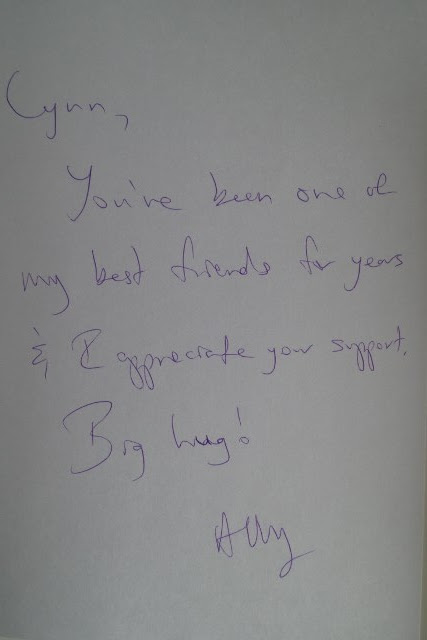 Lynn,
You've been one of
my best friends for years
& I appreciate your support.
Big hug!
Ally